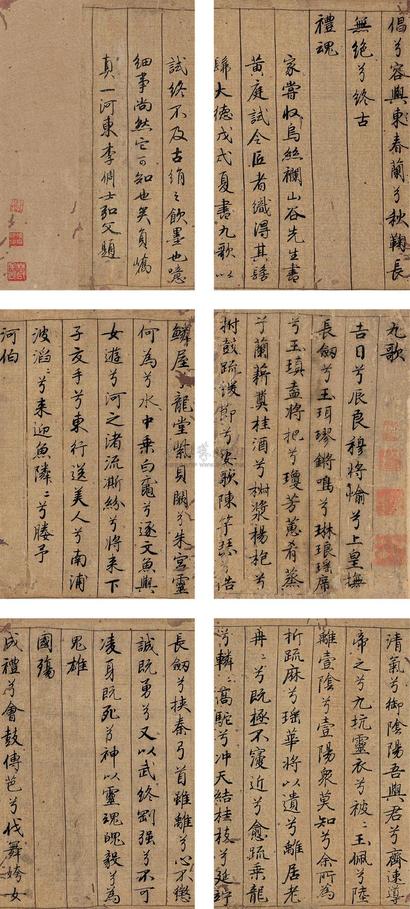 倡兮容與東春蘭兮秋鞠長
無絕兮終古
禮魂
家嘗收烏絲欄山谷先生書
黃庭試令匠者織得其
歸大德戊戌夏書九歌以
試終不及古絹之飲墨也噫
細事尚然它可知也矣員嶠
真一河東李倜士弘父題
九歌
吉日兮辰良穆將愉兮上皇撫
長劍兮玉珥璆鏘鳴兮琳琅瑤席
兮玉瑱盍將把兮瓊芳蕙肴蒸
兮蘭藉奠桂酒兮椒漿楊枹兮
拊鼓疏緩節兮安歌陳竽瑟兮浩
鱗屋龍堂紫貝闕兮朱宮靈
何為兮水中乘白黿兮逐文魚與
女遊兮河之渚流澌紛兮將來下
子交手兮東行送美人兮南浦
波滔〻兮來迎魚隣〻兮媵予
河伯
清氣兮御陰陽吾與君兮齊速導
帝之兮九坑靈衣兮被〻玉佩兮陸
離壹陰兮壹陽衆莫知兮余所為
折疏麻兮瑤華將以遺兮離居老
冉〻兮既極不寖近兮愈疏乘龍
兮轔〻高駝兮沖天結桂枝兮延竚
長劍兮挾秦弓首雖離兮心不懲
誠既勇兮又以武終剛強兮不可
凌身既死兮神以靈魂魄毅兮為
鬼雄
國殤
成禮兮會鼓傳芭兮代舞姱女